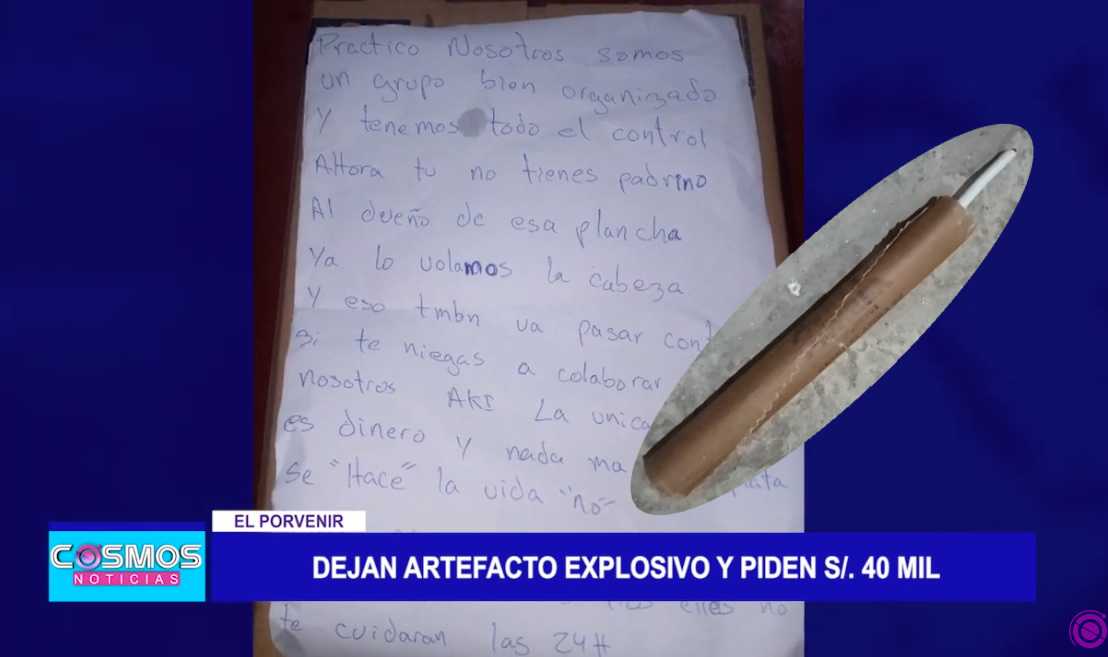 Practico Nosotros somos
un grupo bien organizado
Y tenemos todo el control
Ahora tu no tienes padrino
Al dueño de esa plancha
Ya lo volamos la cabeza
Y eso tmbn va pasar
si te niegas a colaborar
nosotros AKI La unica
es dinero y nada
se "Hace" la vida "no"
EL PORVENIR
COSMOS
NOTICIAS
DEJAN ARTEFACTO EXPLOSIVO Y PIDEN S/. 40 MIL
elles no
te cuidaran las 24H